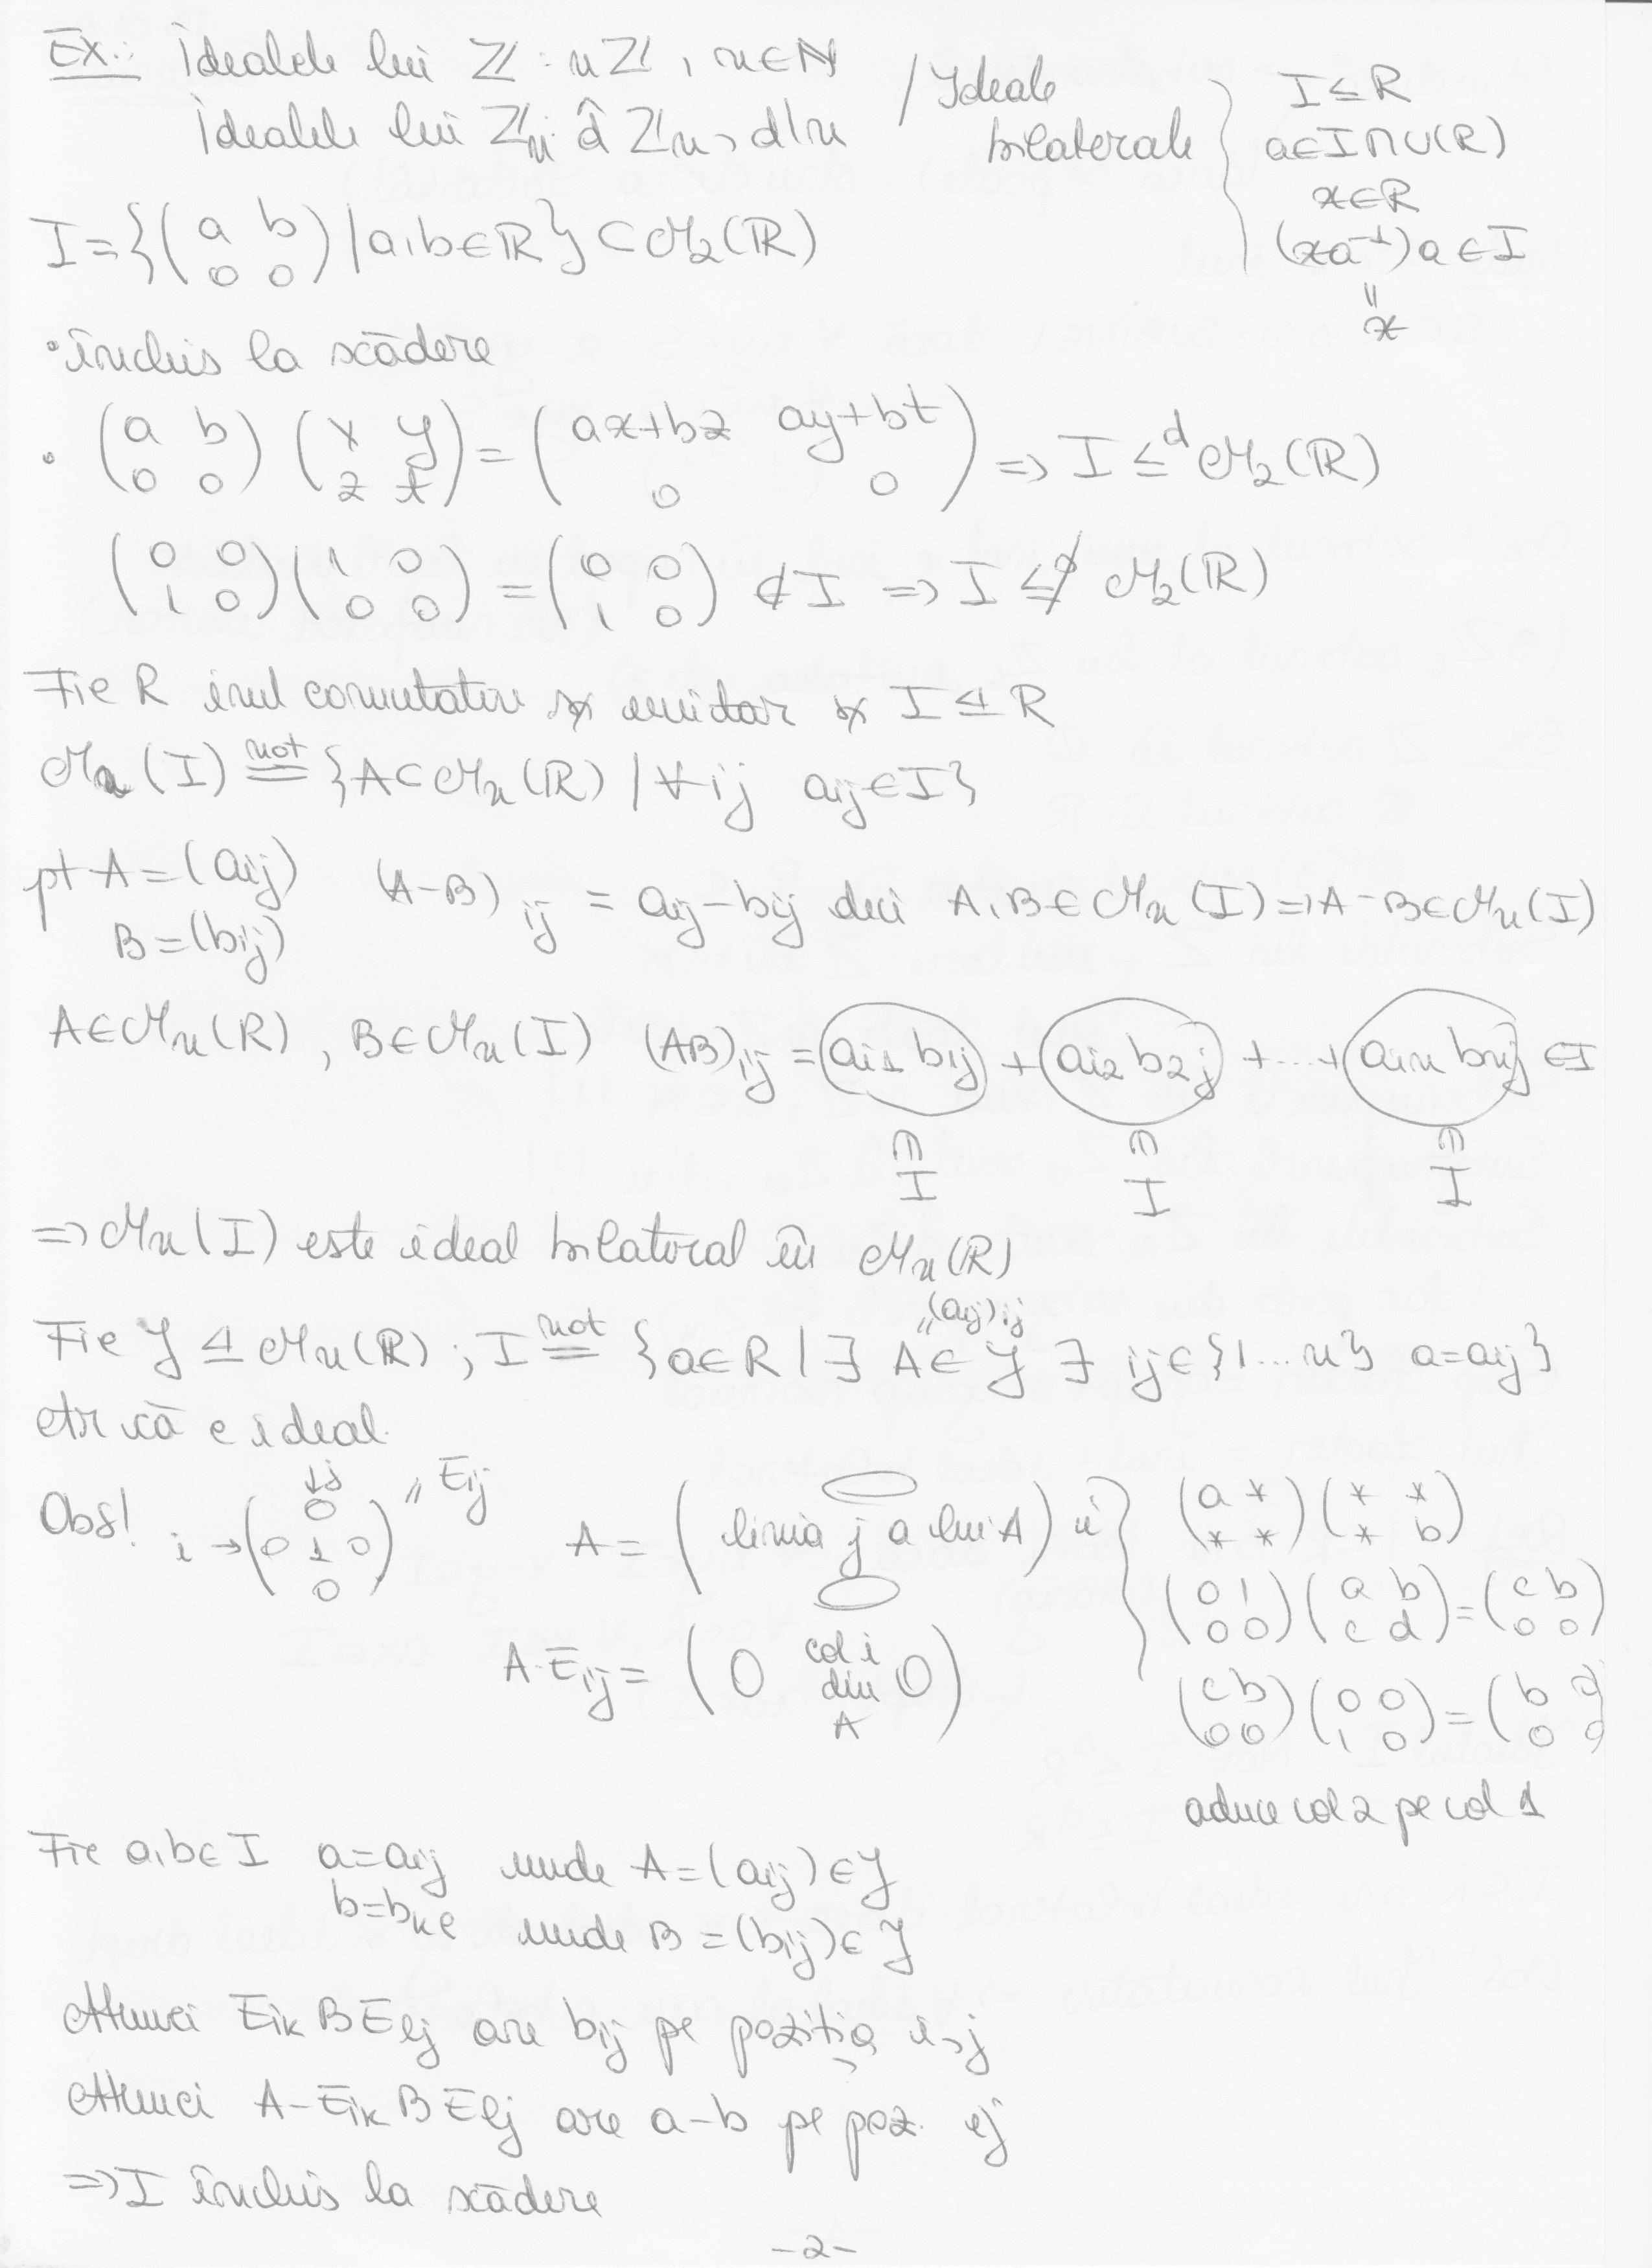 Ex.: Idealele lui ℤ : nℤ, n∈ℕ
Idealele lui ℤn: d̂ ℤn, d|n
/Ideale
bilaterale
I ≤ R
a∈I∩U(R)
x∈R
(xa⁻¹)a ∈ I
=
x
I = {(a b; 0 0) | a,b∈ℝ} ⊂ M₂(ℝ)
• închis la scădere
• (a b; 0 0) (x y; z t) = (ax+bz ay+bt; 0 0) => I ≤ᵈ M₂(ℝ)
(0 0; 1 0)(1 0; 0 0) = (0 0; 1 0) ∉ I => I ≰ M₂(ℝ)
Fie R inel comutativ și unitar și I ⊴ R
Mn(I) not= {A∈Mn(R) | ∀ ij aij∈I}
pt A = (aij) (A-B)ij = aij-bij deci A,B∈Mn(I) => A-B∈Mn(I)
B = (bij)
A∈Mn(R), B∈Mn(I) (AB)ij = ai1 b1j + ai2 b2j + ... + ain bnj ∈I
∩ ∩ ∩
I I I
=> Mn(I) este ideal bilateral în Mn(R)
(aij)ij
Fie J ⊴ Mn(R); I not= {a∈R | ∃ A∈J ∃ ij∈{1...n} a=aij}
Atr că e ideal.
Obs! i → (0; 0 1 0; 0) ↓j = Eij
A = (linia j a lui A) i
A·Eij = (0 col i din A 0)
(a *; * *)(* *; * b)
(0 1; 0 0)(a b; c d) = (c b; 0 0)
(c b; 0 0)(0 0; 1 0) = (b 0; 0 0)
aduce col 2 pe col 1
Fie a,b∈I a=aij unde A=(aij)∈J
b=bkl unde B=(bij)∈J
Atunci Eik B Elj are bij pe poziția i,j
Atunci A-Eik B Elj are a-b pe poz. ij
=> I închis la scădere
-2-